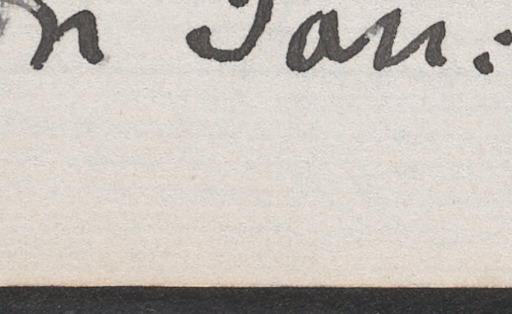 n Jan: